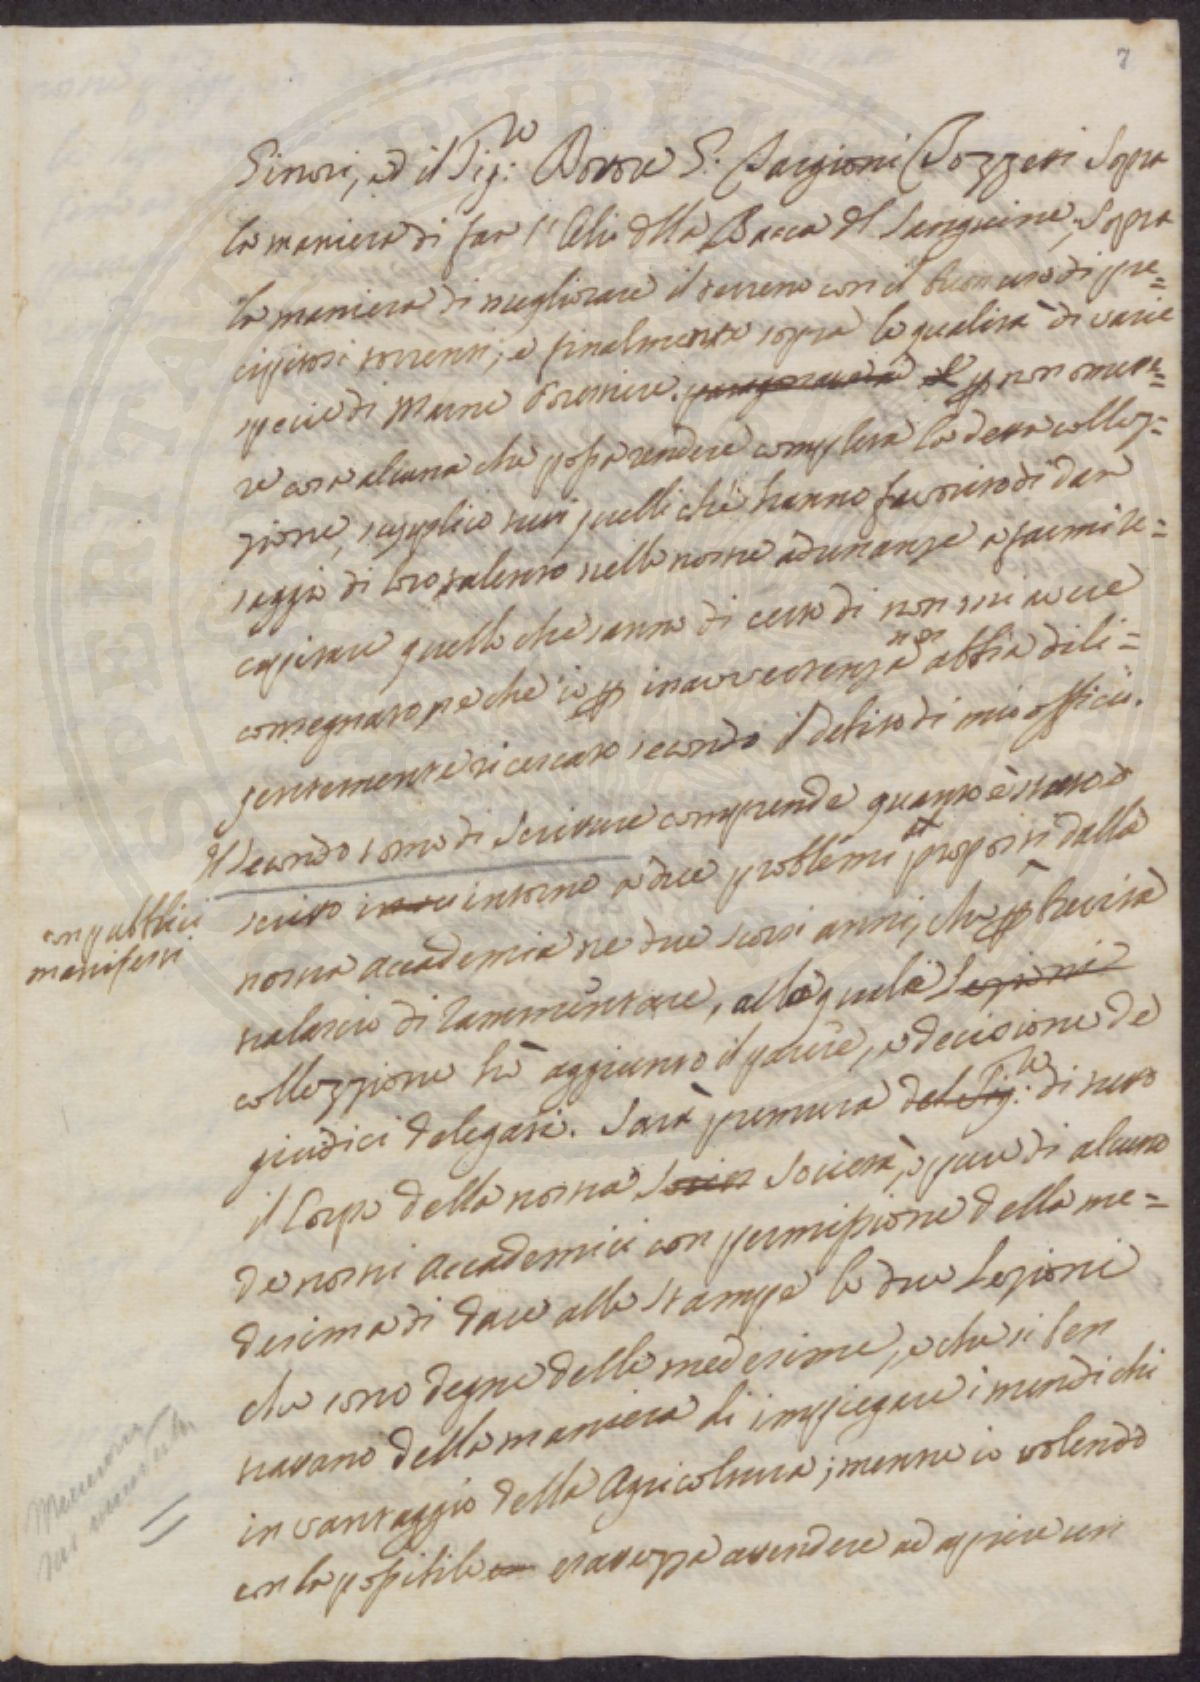 7
Sinori, ed il Sig:re Dottore G. Targioni Tozzetti sopra
la maniera di far l'Olio della Bacca del Sanguine; sopra
la maniera di migliorare il terreno con il buon uso di pre=
cipitosi torrenti; e finalmente sopra le qualità di varie
specie di Marne forestiere. per non omette=
re cosa alcuna che possa rendere completa la detta collez=
zione, supplico tutti quelli che hanno favorito di dar
saggio di loro talento nelle nostre adunanze a farmi re=
capitare quello che sanno di certo di non mi avere
consegnato, e che io per inavvertenza non abbia dili=
gentemente ricercato secondo il debito di mio officio.
Il secondo tomo di scritture comprende quanto è stato
scritto intorno a due problemi proposti dalla
con pubblici
manifesti
nostra Accademia ne due scorsi anni, che per brevità
tralascio di rammentare, alla quale Lezioni
collezzione hò aggiunto il parere, e decisione de
giudici delegati. Sarà premura del Sig:re di tutto
il Corpo della nostra Società, e pure di alcuno
de nostri Accademici con permissione della me=
desima di dare alle stampe le due Lezioni
che sono degne delle medesime, e che si ben
trattano della maniera di impiegare i mendichi
in vantaggio della Agricoltura; mentre io volendo
con la possibile esattezza attendere ad aprire un